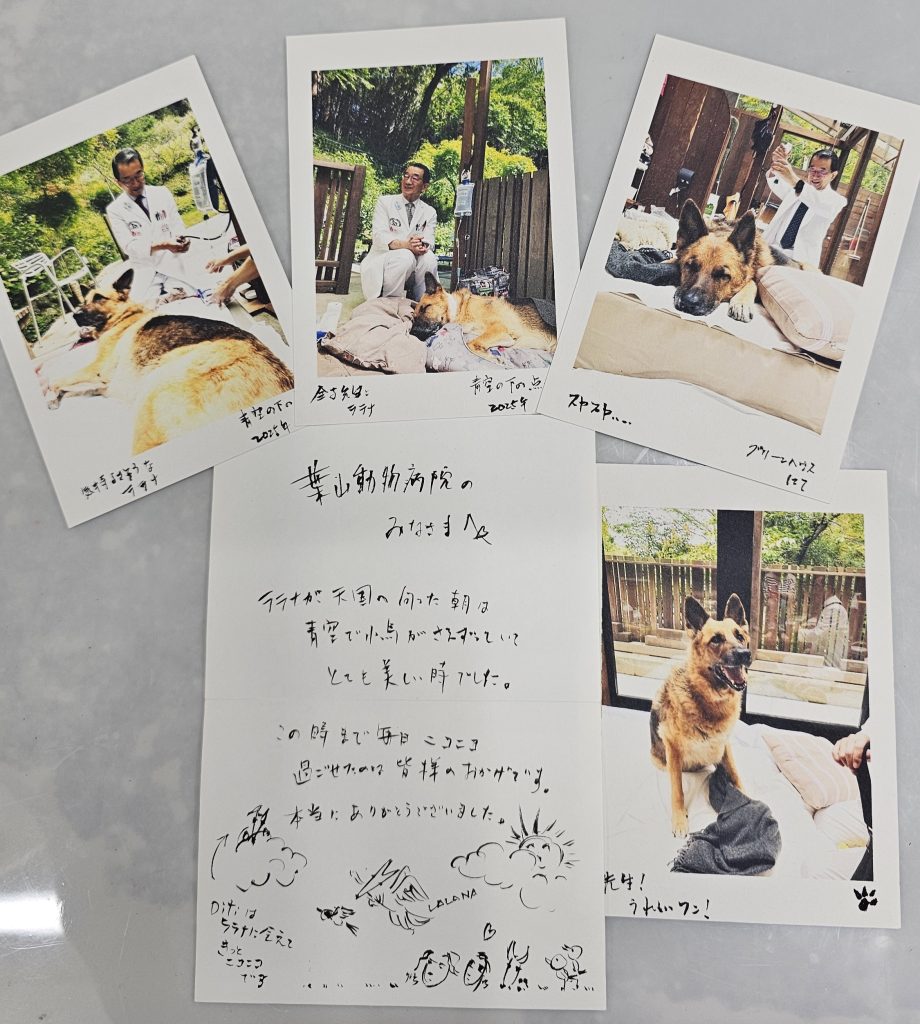 青空の下の
2025年
ララナ
金本先生に
ララナ
青空の下の点
2025年
スヤスヤ...
グリーンハウス
にて
葉山動物病院の
みなさまへ
ララナが天国へ向った朝は
青空で小鳥がさえずっていて
とても美しい時でした。
この時まで毎日ニコニコ
過ごせたのは皆様のおかげです。
本当にありがとうございました。
LALANA
Ditiは
ララナに会えて
きっと
ニコニコ
です
先生!
うれしいワン!